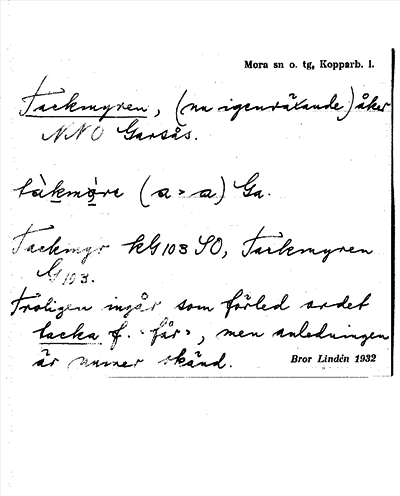 Mora sn o. tg, Kopparb. l.
Tackmyren, (nu igenväxande) åker
NNO Garsås.
tàkmỳre (a - a) Ga.
Tackmyr kG103 SO, Tackmyren
G 103.
Troligen ingår som förled ordet
tacka f. "får", men anledningen
är numer okänd.
Bror Lindén 1932